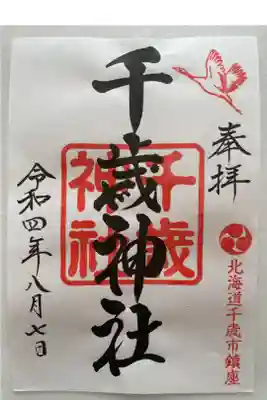 奉拝
北海道千歳市鎮座
千歳神社
千歳
神社
令和四年八月七日